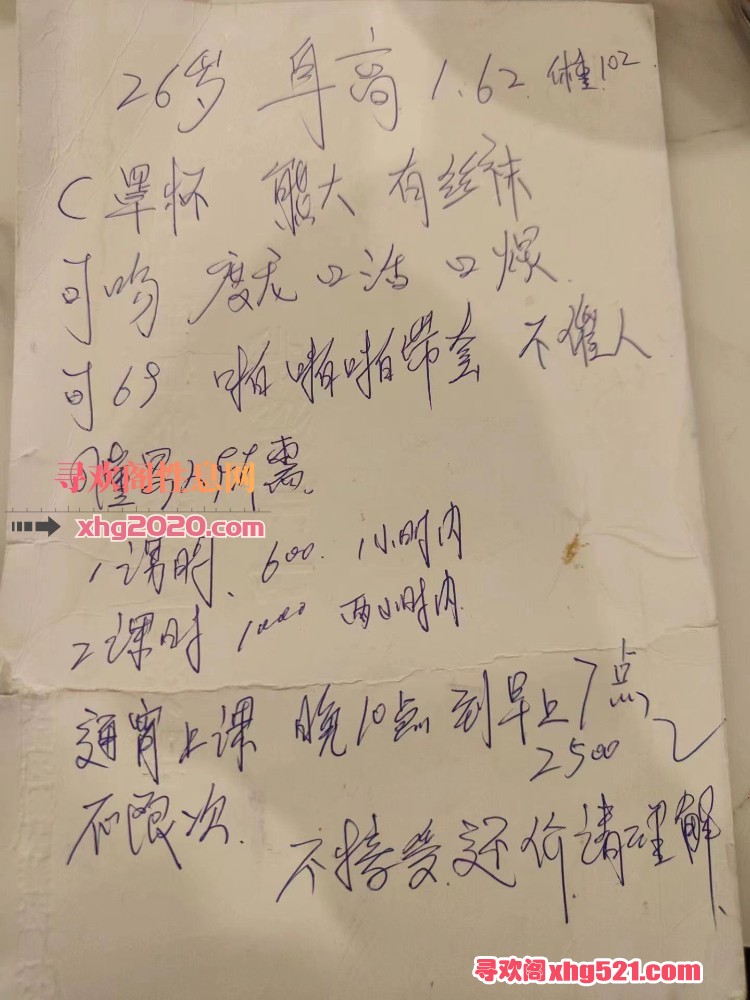 26岁 身高 1.62 体重102
C罩杯 熊大 有丝袜
可吻 口活 口爆
可69 啪啪啪带套 不催人
寻欢阁性息网
xhg2020.com
1课时、600 1小时内
2课时 1000 两小时内
通宵上课 晚10点到早上7点
2500
不限次
不接受还价请理解
寻欢阁xhg521.com